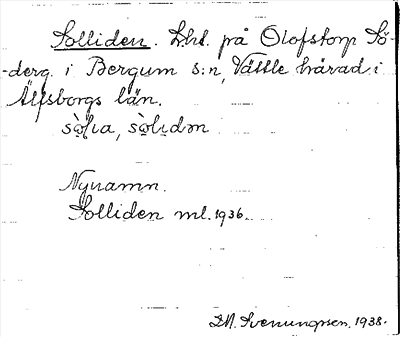 Solliden. Lht. på Olofstorp Sö-
-derg. i Bergum s:n, Vättle härad i
Älfsborgs län.
sòlia, sòlidən
Nynamn.
Solliden ml. 1936.
D.N. Svenungsen. 1938.